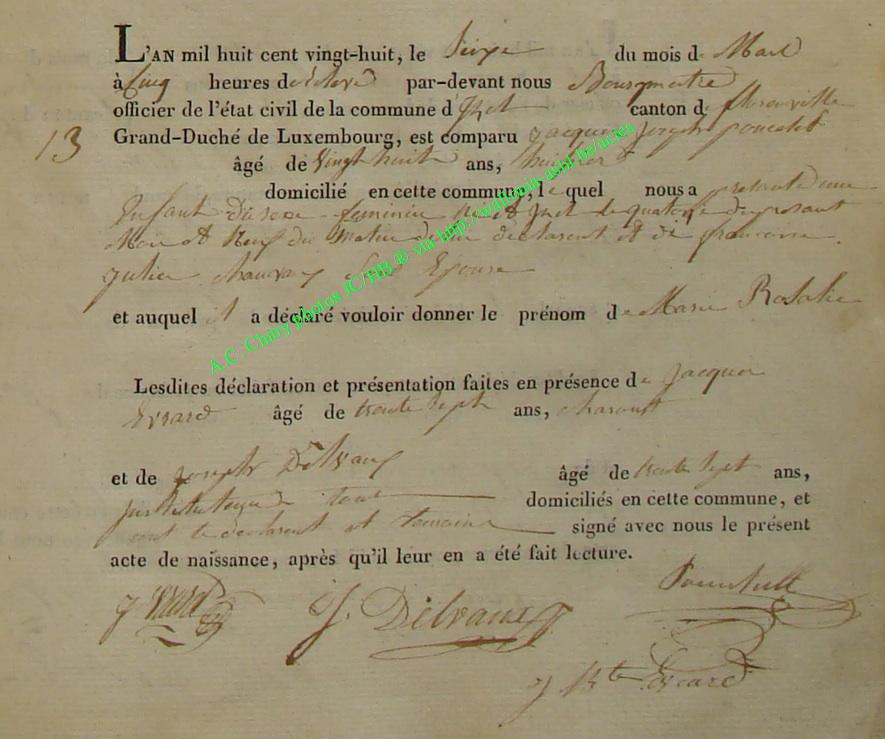 L'AN mil huit cent vingt-huit, le Seize du mois de Mars
à Cinq heures de relevé par-devant nous Bourgmestre
officier de l'état civil de la commune d'Izel canton de florenville
13 Grand-Duché de Luxembourg, est comparu Jacques Joseph poncelet
âgé de vingt huit ans,
domicilié en cette commune, le quel nous a présenté une
Enfant du sexe feminin né à Izel le quatorze du présent
Mois à Neuf du Matin de lui déclarent et de francoise
Julie son Epouse
et auquel il a déclaré vouloir donner le prénom de Marie Rosalie
Lesdites déclaration et présentation faites en présence de Jacques
Evrard âgé de trente Sept ans,
et de Joseph Delvaux âgé de trente Sept ans,
Instituteur tous domiciliés en cette commune, et
ont le declarent et temoins signé avec nous le présent
acte de naissance, après qu'il leur en a été fait lecture.
J Evrard J. Delvaux Poncelet
J Bte Evrard
A.C. Chiny photos JC/HB ® via http://wallonia-asbl.be/actes